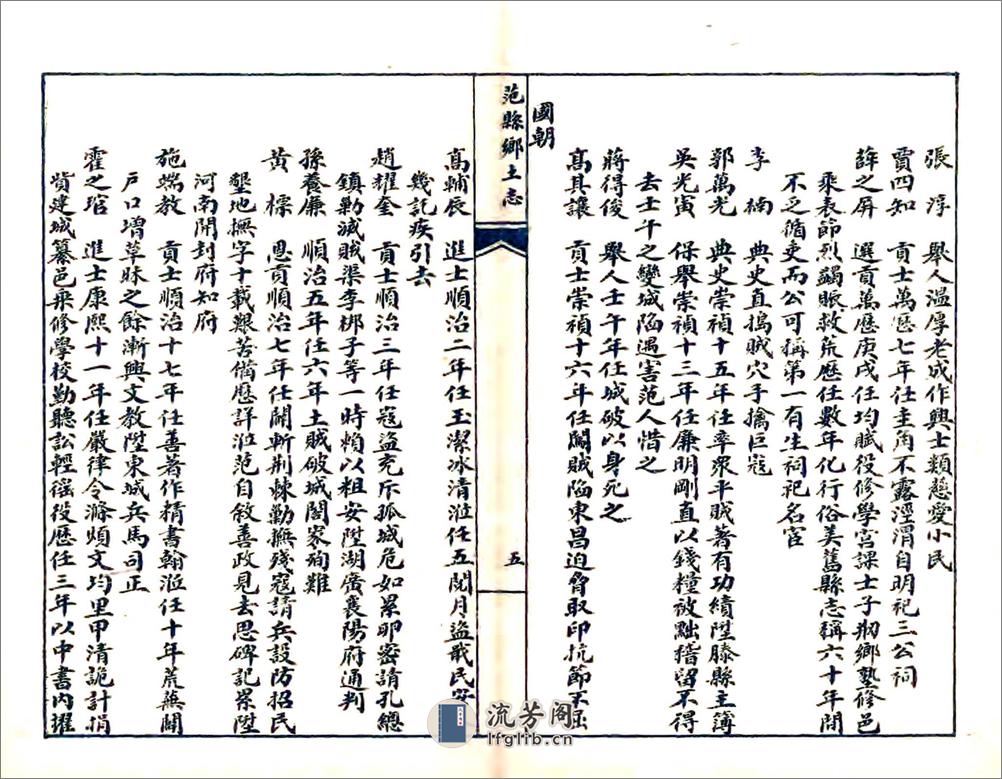 張 淳 舉人溫厚老成作興士類慈愛小民
賈四知 貢士萬歷七年任圭角不露涇渭自明祀三公祠
薛之屏 選貢萬歷庚戌任均賦役修學宮課士子剏鄉塾修邑
乘表節烈蠲賑救荒歷任數年化行俗美舊縣志稱六十年間
不乏循吏而公可稱第一有生祠祀名宦
李 楠 典史直搗賊穴手擒巨寇
郭萬光 典史崇禎十五年任率衆平賊著有功績陞滕縣主簿
吳光寅 保舉崇禎十三年任廉明剛直以錢糧被黜稽留不得
去壬午之變城陷遇害范人惜之
蔣得俊 舉人壬午年任城破以身死之
高其讓 貢士崇禎十六年任闖賊陷東昌迫脅取印抗節不屈
國朝
范縣鄉土志
五
高輔辰 進士順治二年任玉潔冰清涖任五閱月盜戢民安
幾託疾引去
趙耀奎 貢士順治三年任寇盜充斥孤城危如累卵密請孔總
鎮勦滅賊渠李梆子等一時賴以粗安陞湖廣襄陽府通判
孫養廉 順治五年任六年土賊破城闔家殉難
黃 標 恩貢順治七年任闢斬荆棘勤撫殘寇請兵設防招民
墾地撫字十載艱苦備歷詳涖范自敘善政見去思碑記累陞
河南開封府知府
施端教 貢士順治十七年任善著作精書翰涖任十年荒蕪闢
戶口增草昧之餘漸興文教陞東城兵馬司正
霍之琯 進士康熙十一年任嚴律令滌煩文均里甲清詭計捐
貲建城纂邑乘修學校勤聽訟輕徭役歷任三年以中書內擢
流芳阁
lfglib.cn